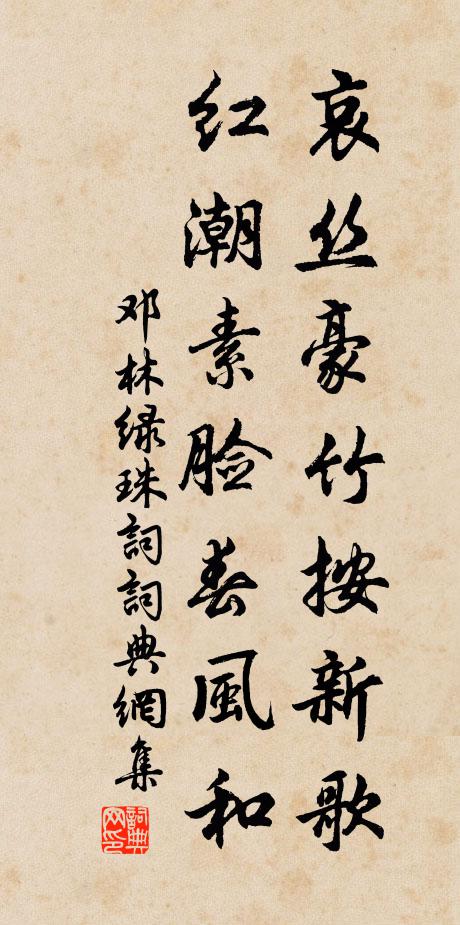 哀丝豪竹按新歌
红潮素脸春风和
邓林绿珠词词典网集
词典网印